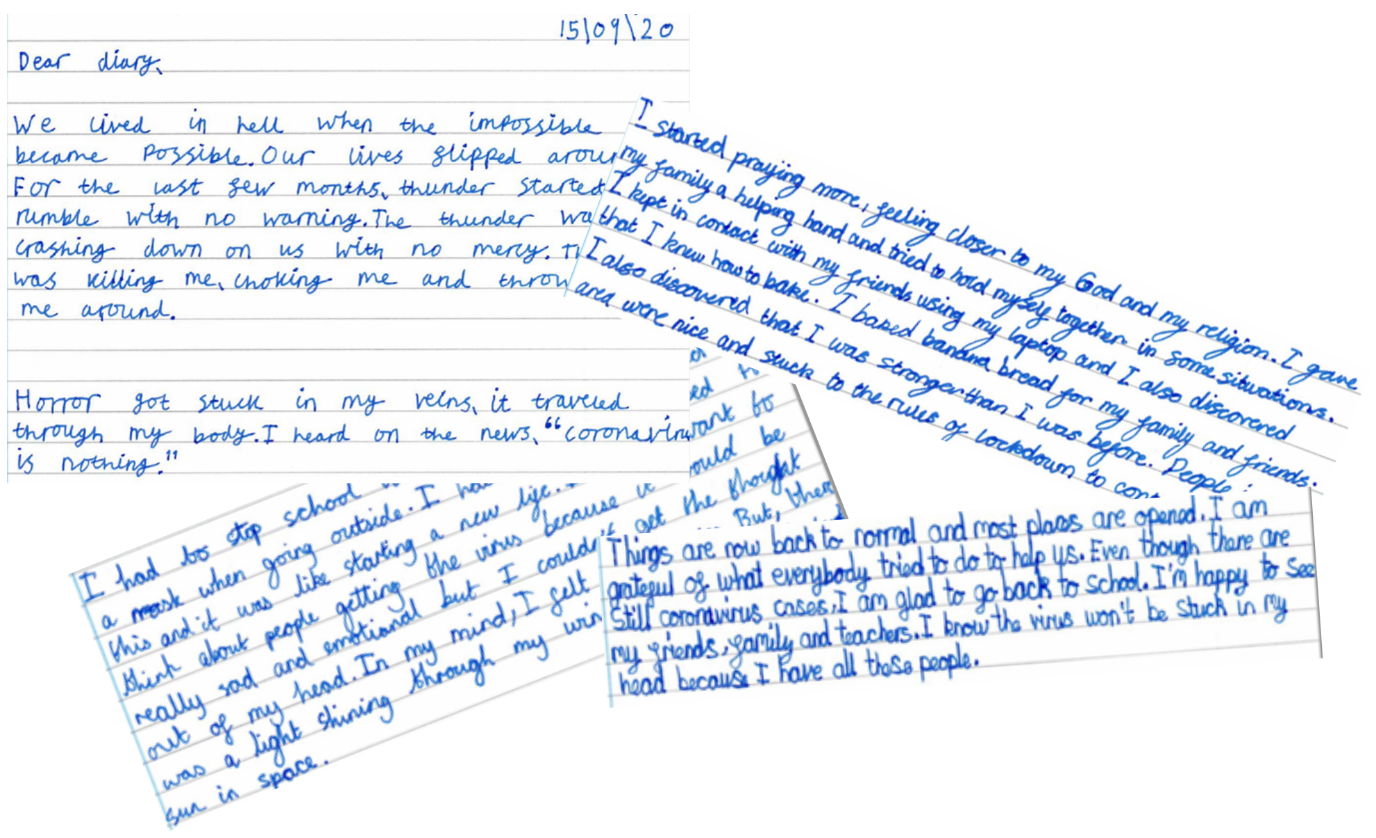 15\09\20
Dear diary,
We lived in hell when the impossible
became possible. Our lives flipped
For the last few months, thunder started
rumble with no warning. The thunder
crashing down on us with no mercy.
was killing me, choking me and
me around.
Horror got stuck in my veins, it traveled
through my body. I heard on the news, "coronavirus
is nothing."
I started praying more, feeling closer to my God and my religion. I gave
my family a helping hand and tried to hold myself together in some situations.
I kept in contact with my friends using my laptop and I also discovered
that I knew how to bake. I baked banana bread for my family and friends.
I also discovered that I was stronger than I was before. People
area were nice and stuck to the rules of lockdown to
want to
ould be
get the thought
But, there
I had to stop school
a mask when going outside. I
this and it was like starting a new life.
think about people getting the virus because it
really sad and emotional but I couldn't
out of my head. In my mind, I felt
was a light shining through my
sun in space.
Things are now back to normal and most places are opened. I am
grateful of what everybody tried to do to help us. Even though there are
still coronavirus cases, I am glad to go back to school. I'm happy to see
my friends, family and teachers. I know the virus won't be stuck in my
head because I have all those people.